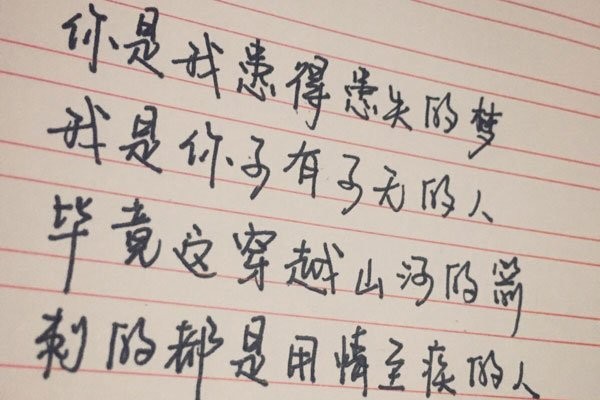 你是我患得患失的梦
我是你可有可无的人
毕竟这穿越山河的箭
刺的都是用情至疾的人